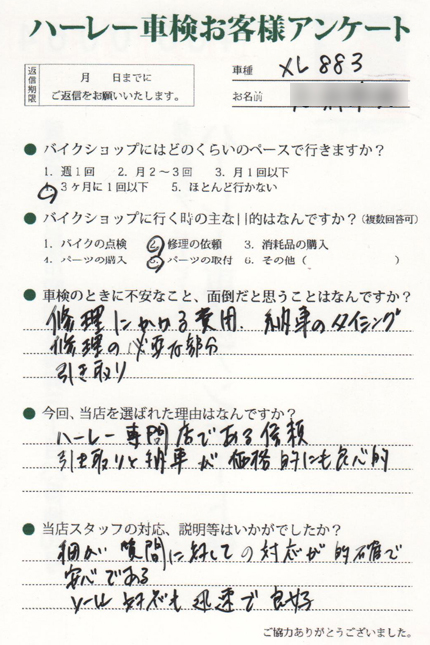 ハーレー車検お客様アンケート
返信期限
月　日までに
ご返信をお願いいたします。
車種 XL883
お名前
● バイクショップにはどのくらいのペースで行きますか？
1. 週1回　2. 月2～3回　3. 月1回以下
4. 3ヶ月に1回以下　5. ほとんど行かない
● バイクショップに行く時の主な目的はなんですか？（複数回答可）
1. バイクの点検　2. 修理の依頼　3. 消耗品の購入
4. パーツの購入　5. パーツの取付　6. その他（　　　　）
● 車検のときに不安なこと、面倒だと思うことはなんですか？
修理にかかる費用、納車のタイミング
修理の必要な部分
引き取り
● 今回、当店を選ばれた理由はなんですか？
ハーレー専門店である信頼
引き取りと納車が価格的にも良心的
● 当店スタッフの対応、説明等はいかがでしたか？
細かい質問に対しての対応が的確で
安心である
メール対応も迅速で良好
ご協力ありがとうございました。